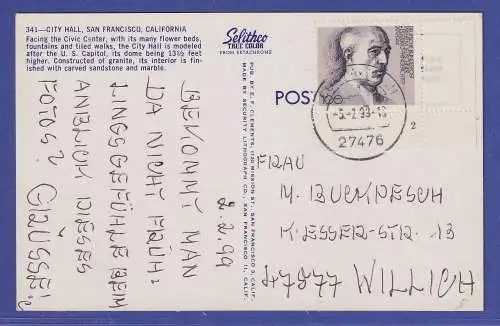 341—CITY HALL, SAN FRANCISCO, CALIFORNIA
Facing the Civic Center, with its many flower beds,
fountains and tiled walks, the City Hall is modeled
after the U. S. Capitol, its dome being 13½ feet
higher. Constructed of granite, its interior is fin-
ished with carved sandstone and marble.
Selithco
TRUE COLOR
FROM EKTACHROME
PUB. BY E. F. CLEMENTS, 1126 MISSION ST., SAN FRANCISCO 3, CALIF.
MADE BY SECURITY LITHOGRAPH CO., SAN FRANCISCO 11, CALIF.
2.2.99
BEKOMMT MAN
DA NICHT FRÜH=
LINGSGEFÜHLE BEIM
ANBLICK DIESES
FOTOS?
GRÜSSE!
POST
100
27476
2
FRAU
M. BUCKPESCH
K.ESSER-STR. 13
47877 WILLICH